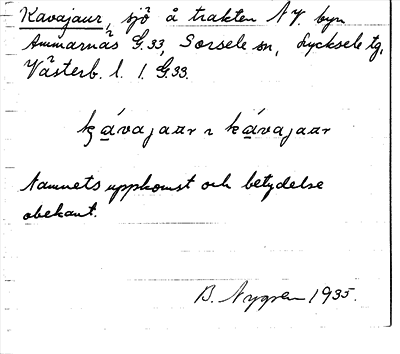 Kavajaur, sjö å trakten NY. byn
Ammarnäs G.33, Sorsele sn, Lycksele tg,
Västerb. l. l. G.33.
kávajaar ɿ kávajaar
Namnets uppkomst och betydelse
obekant.
B. Nygren 1935.